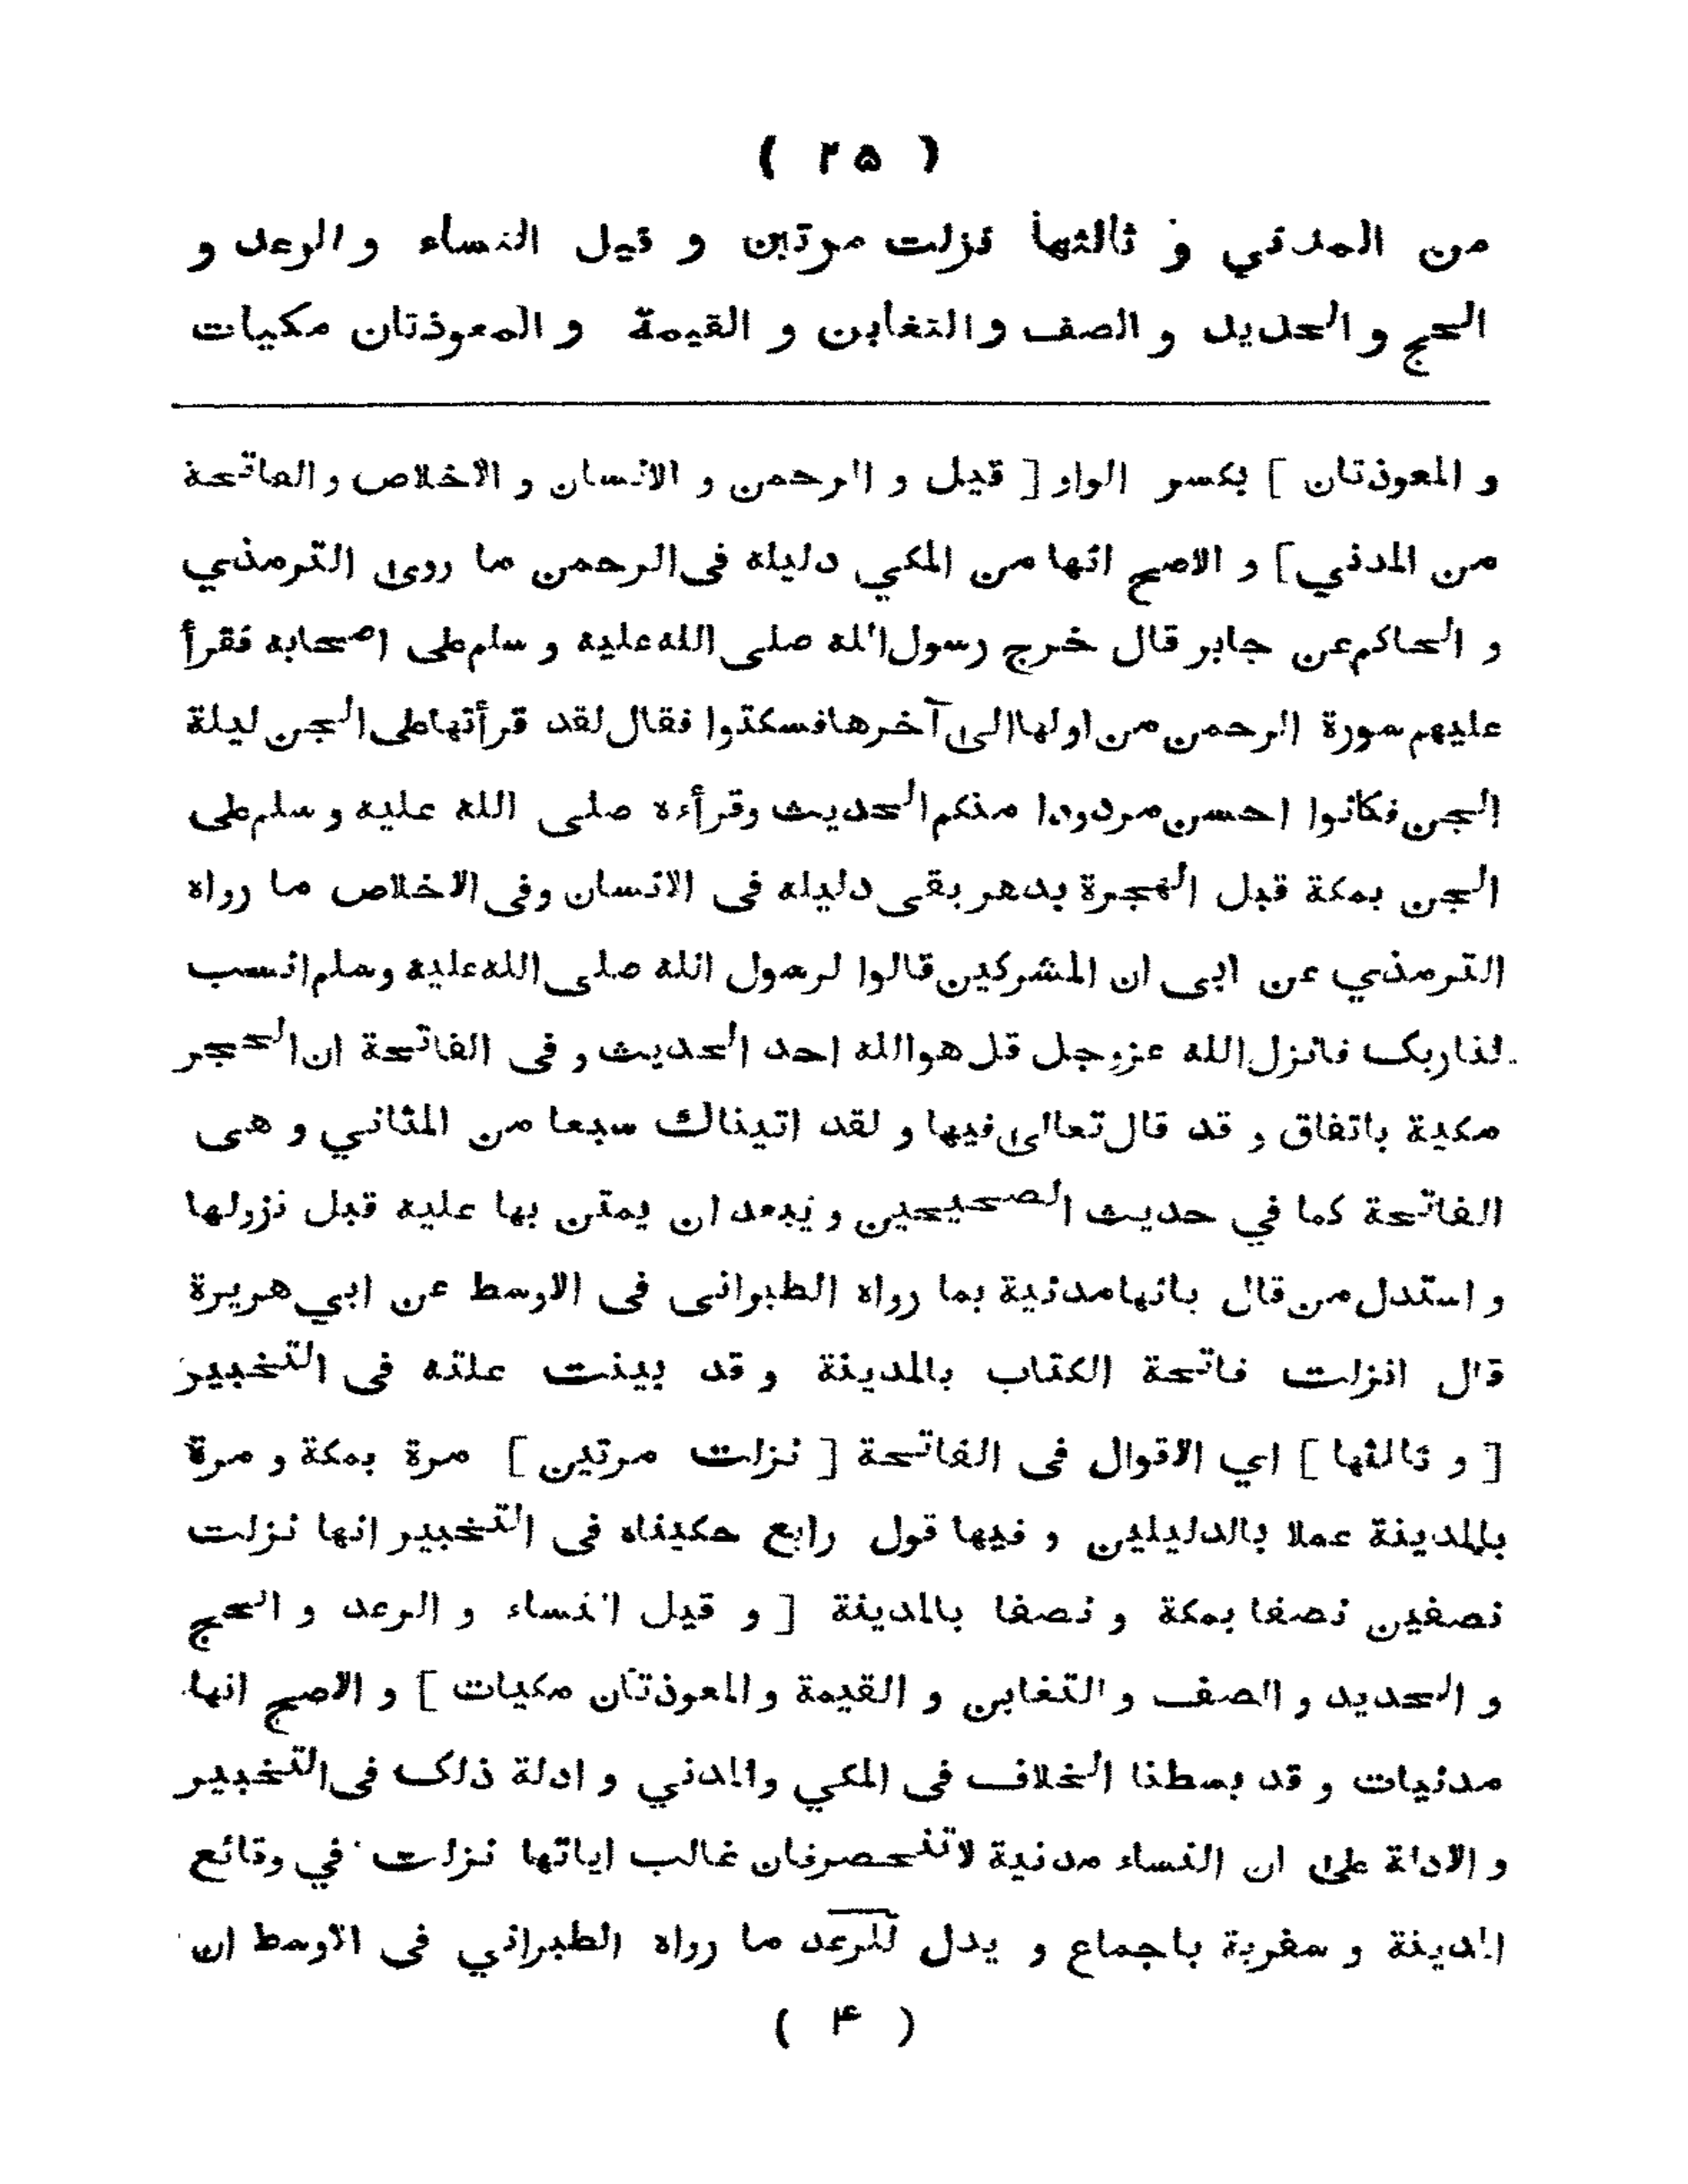 ( ٢٥ )
من المدني و ثالثها نزلت مرتين و قيل النساء و الرعد و
الحج و الحديد و الصف و التغابن و القيمة و المعوذتان مكيات
و المعوذتان ] بكسر الواو [ قيل و الرحمن و الانسان و الاخلاص و الفاتحة
من المدني ] و الاصح انها من المكي دليله فى الرحمن ما روى الترمذي
و الحاكم عن جابر قال خرج رسول الله صلى الله عليه و سلم على اصحابه فقرأ
عليهم سورة الرحمن من اولها الى آخرها فسكتوا فقال لقد قرأتها على الجن ليلة
الجن فكانوا احسن مردودا منكم الحديث وقرأءه صلى الله عليه و سلم على
الجن بمكة قبل الهجرة بدهر بقى دليله فى الانسان وفى الاخلاص ما رواه
الترمذي عن ابى ان المشركين قالوا لرسول الله صلى الله عليه وسلم انسب
لنا ربك فانزل الله عزوجل قل هو الله احد الحديث و فى الفاتحة ان الحجر
مكية باتفاق و قد قال تعالى فيها و لقد اتيناك سبعا من المثاني و هى
الفاتحة كما في حديث الصحيحين و يبعد ان يمتن بها عليه قبل نزولها
و استدل من قال بانها مدنية بما رواه الطبرانى فى الاوسط عن ابي هريرة
قال انزلت فاتحة الكتاب بالمدينة و قد بينت علته فى التخبير
[ و ثالثها ] اي الاقوال فى الفاتحة [ نزلت مرتين ] مرة بمكة و مرة
بالمدينة عملا بالدليلين و فيها قول رابع حكيناه فى التخبير انها نزلت
نصفين نصفا بمكة و نصفا بالمدينة [ و قيل النساء و الرعد و الحج
و الحديد و الصف و التغابن و القيمة و المعوذتان مكيات ] و الاصح انها
مدنيات و قد بسطنا الخلاف فى المكي والمدني و ادلة ذلك فى التخبير
و الادلة على ان النساء مدنية لاتنحصر فان غالب اياتها نزلت في وقائع
المدينة و سفرية باجماع و يدل للرعد ما رواه الطبراني فى الاوسط ان
( ۴ )